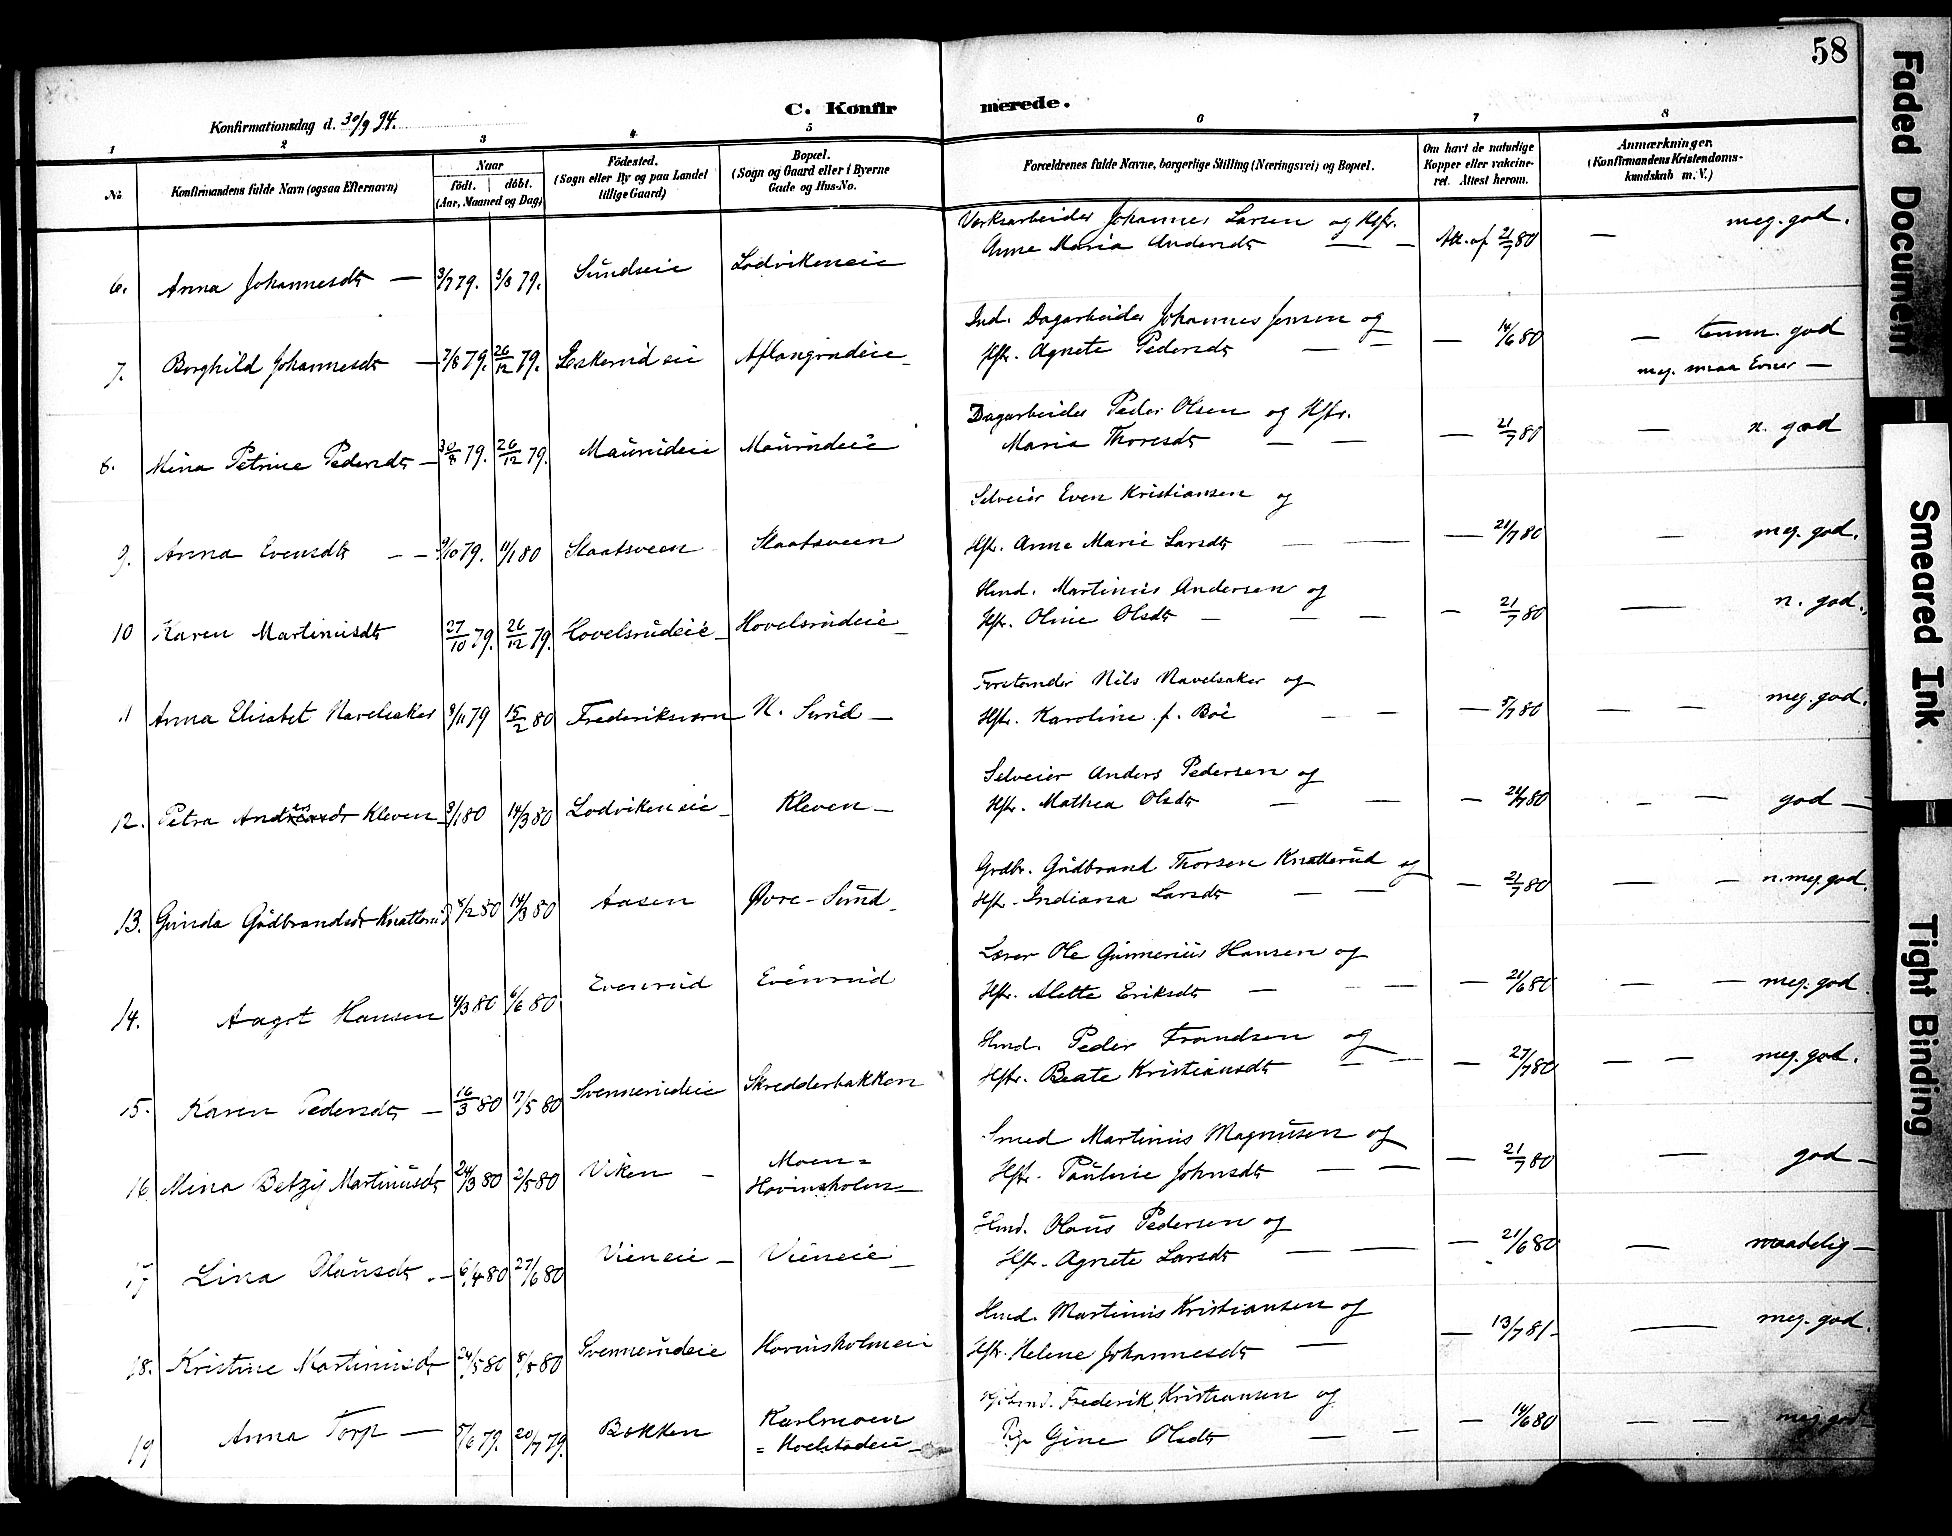 58
C. Konfirmerede.
Konfirmationsdag d. 30/9 94.
1 2 3 4 5 6 7 8
No
Konfirmandens fulde Navn (ogsaa Efternavn)
Naar
födt. döbt.
(Aar, Maaned og Dag)
Födested.
(Sogn eller By og paa Landet
tillige Gaard)
Bopæl.
(Sogn og Gaard eller i Byerne
Gade og Hus-No.
Forældrenes fulde Navne, borgerlige Stilling (Næringsvei) og Bopæl.
Om havt de naturlige
Kopper eller vakcine-
ret. Attest herom.
Anmærkninger.
(Konfirmandens Kristendoms-
kundskab m. V.)
6. Anna Johannesdtr — 3/7 79. 3/8 79. Sundseie Lodvikeneie
Værksarbeider Johannes Larsen og Hstr.
Anne Maria Andersdtr — — Att. af 21/7 80 — meg. god.
7. Borghild Johannesdtr — 7/8 79. 26/12 79. Leskerud eie Aflangrudeie –
Ind. Dagarbeider Johannes Jensen og
Hstr. Agnete Pedersdtr — — — 14/6 80 — temm. god
meg. smaa Evner —
8. Mina Petrine Pedersdtr — 30/8 79. 26/12 79. Maurudeie Maurudeie
Dagarbeider Peder Olsen og Hstr.
Maria Thoresdtr — — — 21/7 80 — n. god
9. Anna Evensdtr — — 9/10 79. 11/1 80 Staatsveen Staatsveen
Selveier Even Kristiansen og
Hstr. Anne Marie Larsdtr — — — 21/7 80 — meg. god.
10 Karen Martinusdtr 27/10 79. 26/12 79. Hovelsrudeie – Hovelsrudeie –
Hmd. Martinus Andersen og
Hstr. Oline Olsdtr – — — — 21/7 80 — n. god.
11 Anna Elisabet Navelsaker 8/11 79 15/2 80 Frederiksværn N. Sund –
Forstander Nils Navelsaker og
Hstr. Karoline f. Boe — — — 5/7 80 — — meg. god.
12. Petra Andersdr Kleven 3/1 80 14/3 80 Lodvikeneie – Kleven –
Selveier Anders Pedersen og
Hstr. Mathea Olsdtr — — — 24/7 80 – — god —
13. Gunda Gudbrandsdr Knatterud 4/2 80 14/3 80 Aasen Øvre-Sund –
Grdbr. Gudbrand Thorsen Knatterud og
Hstr. Indiana Larsdtr — — — 21/7 80 — — n. meg. god.
14. Aagot Hansen 4/3 80 6/6 80 Evenrud Evenrud
Lærer Ole Gunnerius Hansen og
Hstr. Alette Eriksdtr — — — 21/6 80 — — meg. god.
15. Karen Pedersdtr — 16/3 80 17/5 80 Svennerudeie Skredderbakken
Hmd. Peder Frandsen og
Hstr. Beate Kristiansdtr — — — 27/7 80 — — meg. god.
16 Mina Betzy Martinusdtr 24/3 80 2/5 80 Viken – Moen =
Hovinsholm –
Smed Martinus Magnusen og
Hstr. Pauline Johnsdtr — — — 21/7 80 — god –
17 Lina Olausdtr – 6/4 80 27/6 80 Vieneie – Vieneie –
Hmd. Olaus Pedersen og
Hstr. Agnete Larsdtr — — — 21/6 80 — maadelig –
18. Kristine Martinusdr 24/5 80 8/8 80 Svennerudeie Hovinsholmeie
Hmd. Martinus Kristiansen og
Hstr. Helene Johannesdtr — — 13/7 81 – — meg. god.
19 Anna Torp — 5/6 79. 20/7 79. Bakken Karlmoen
= Hoelstadeie –
Frederik Kristiansen og
Pige Gine Olsdtr — — — 14/6 80 — — meg. god –
Faded Document
Smeared Ink.
Tight Binding